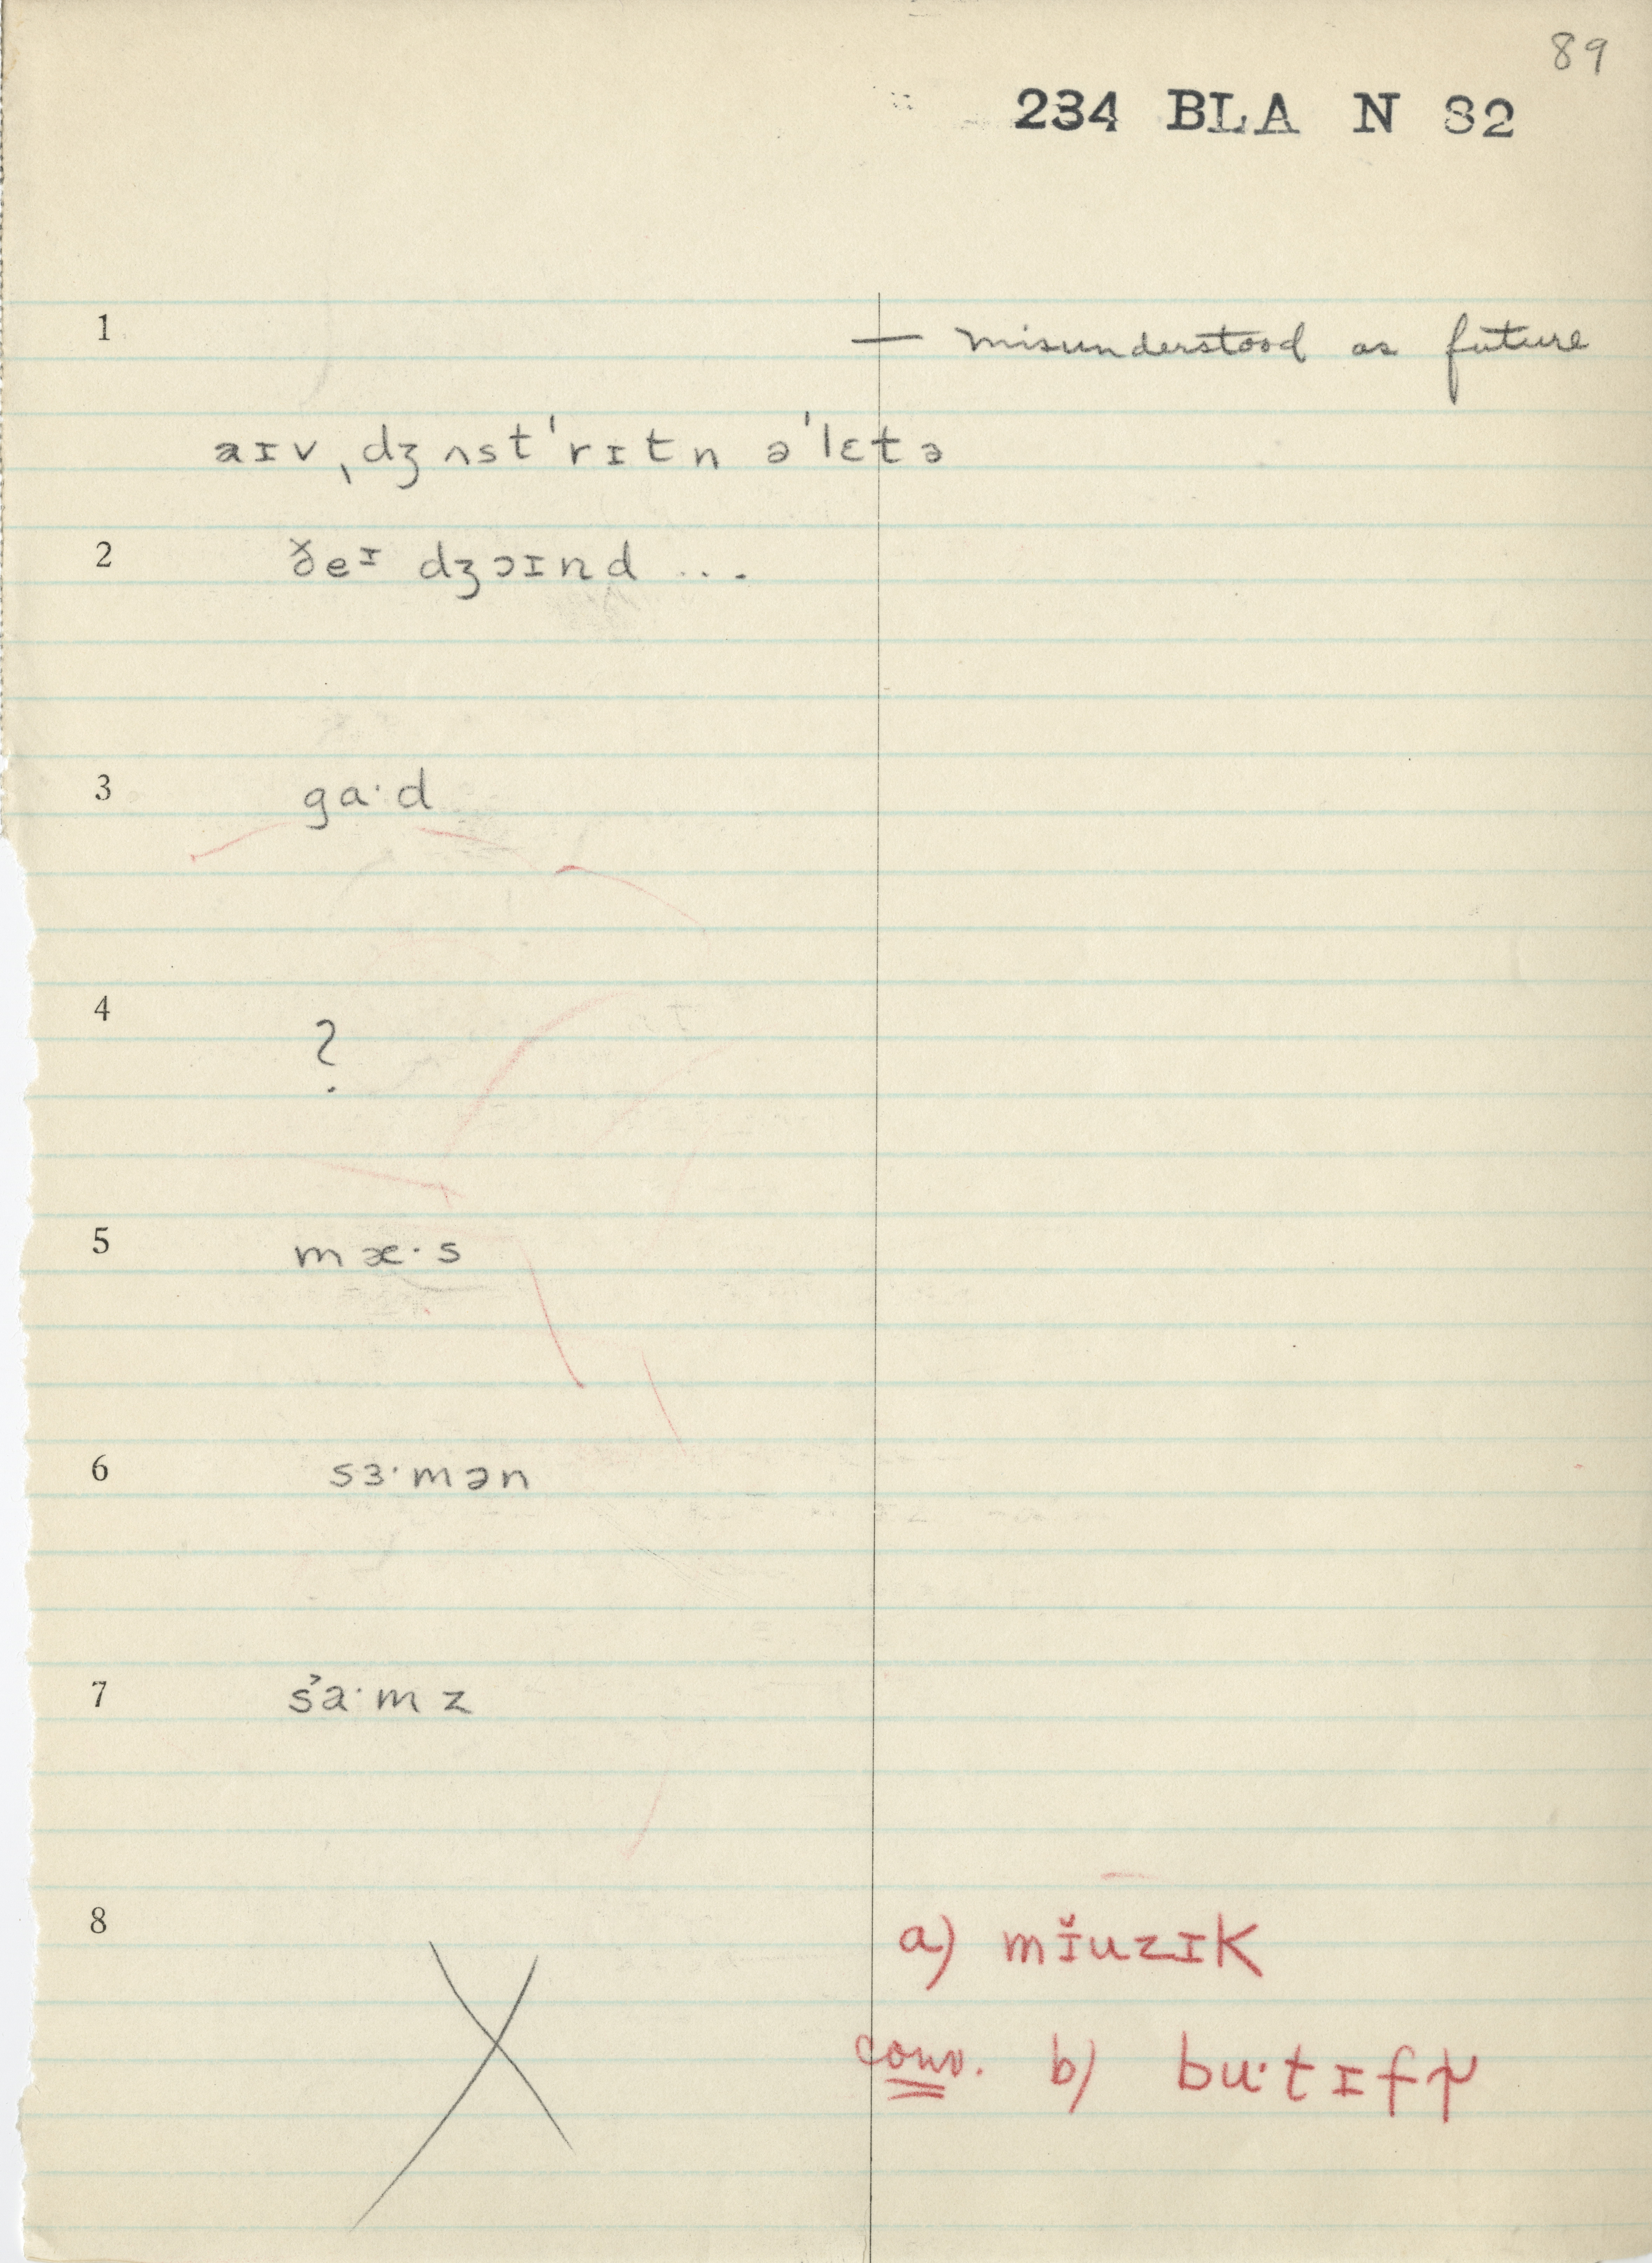 89
234 BLA N 82
1 — misunderstood as future
aɪv ˌdʒʌst ˈrɪtn ə ˈlɛtə
2 ðeᶦ dʒɔɪnd ...
3 ga·d
4 ?
5 mæ·s
6 sɜ·mən
7 sa·mz
8
a) mɪ̆uzɪk
conv. b) bu·tɪf